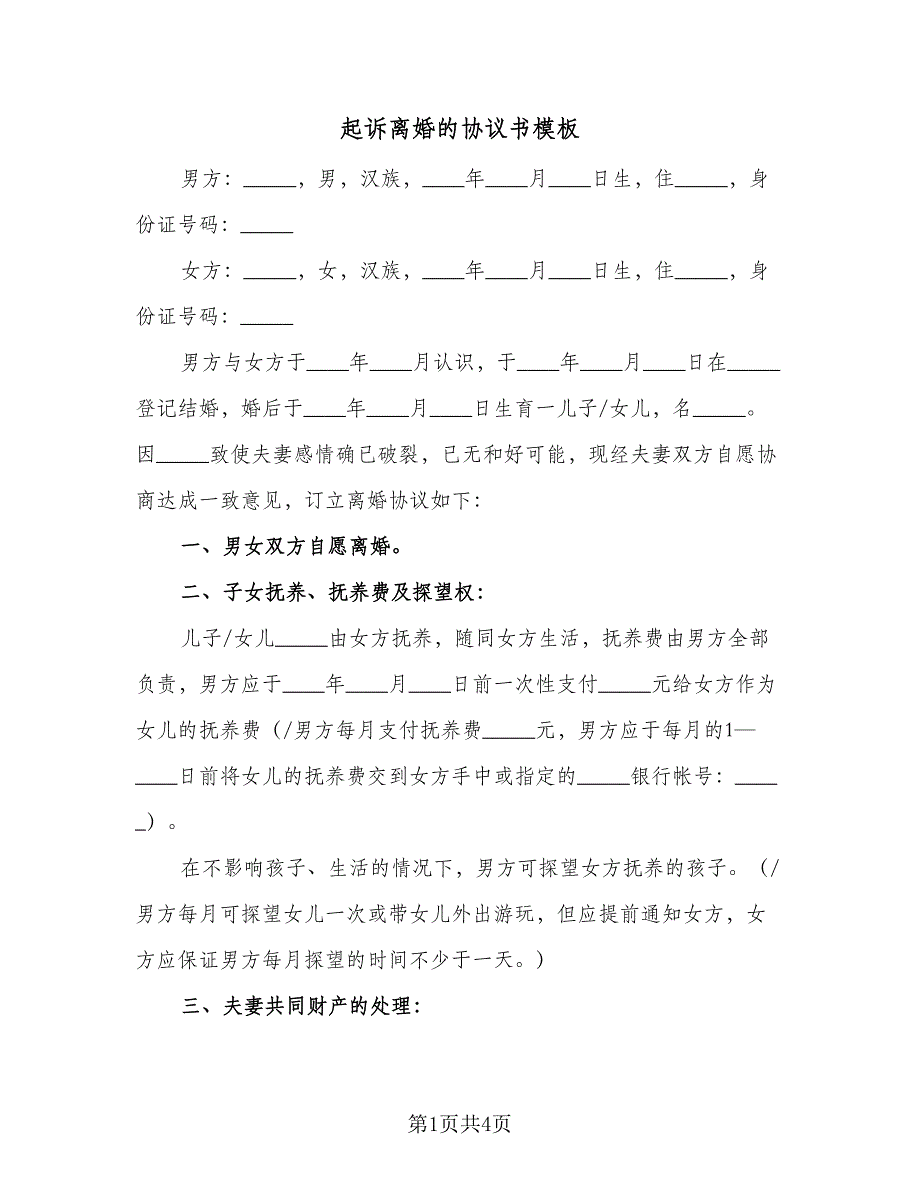 起诉离婚的协议书模板
男方：_____，男，汉族，____年____月____日生，住_____，身
份证号码：_____
女方：_____，女，汉族，____年____月____日生，住_____，身
份证号码：_____
男方与女方于____年____月认识，于____年____月____日在_____
登记结婚，婚后于____年____月____日生育一儿子/女儿，名_____。
因_____致使夫妻感情确已破裂，已无和好可能，现经夫妻双方自愿协
商达成一致意见，订立离婚协议如下：
一、男女双方自愿离婚。
二、子女抚养、抚养费及探望权：
儿子/女儿_____由女方抚养，随同女方生活，抚养费由男方全部
负责，男方应于____年____月____日前一次性支付_____元给女方作为
女儿的抚养费（/男方每月支付抚养费_____元，男方应于每月的1—
____日前将女儿的抚养费交到女方手中或指定的_____银行帐号：____
_）。
在不影响孩子、生活的情况下，男方可探望女方抚养的孩子。（/
男方每月可探望女儿一次或带女儿外出游玩，但应提前通知女方，女
方应保证男方每月探望的时间不少于一天。）
三、夫妻共同财产的处理：
第1页共4页